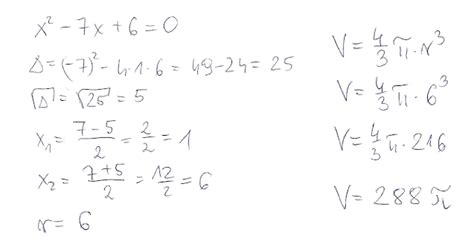 x² - 7x + 6 = 0
Δ = (-7)² - 4·1·6 = 49 - 24 = 25
√Δ = √25 = 5
x₁ = (7-5)/2 = 2/2 = 1
x₂ = (7+5)/2 = 12/2 = 6
r = 6
V = 4/3 π · r³
V = 4/3 π · 6³
V = 4/3 π · 216
V = 288 π